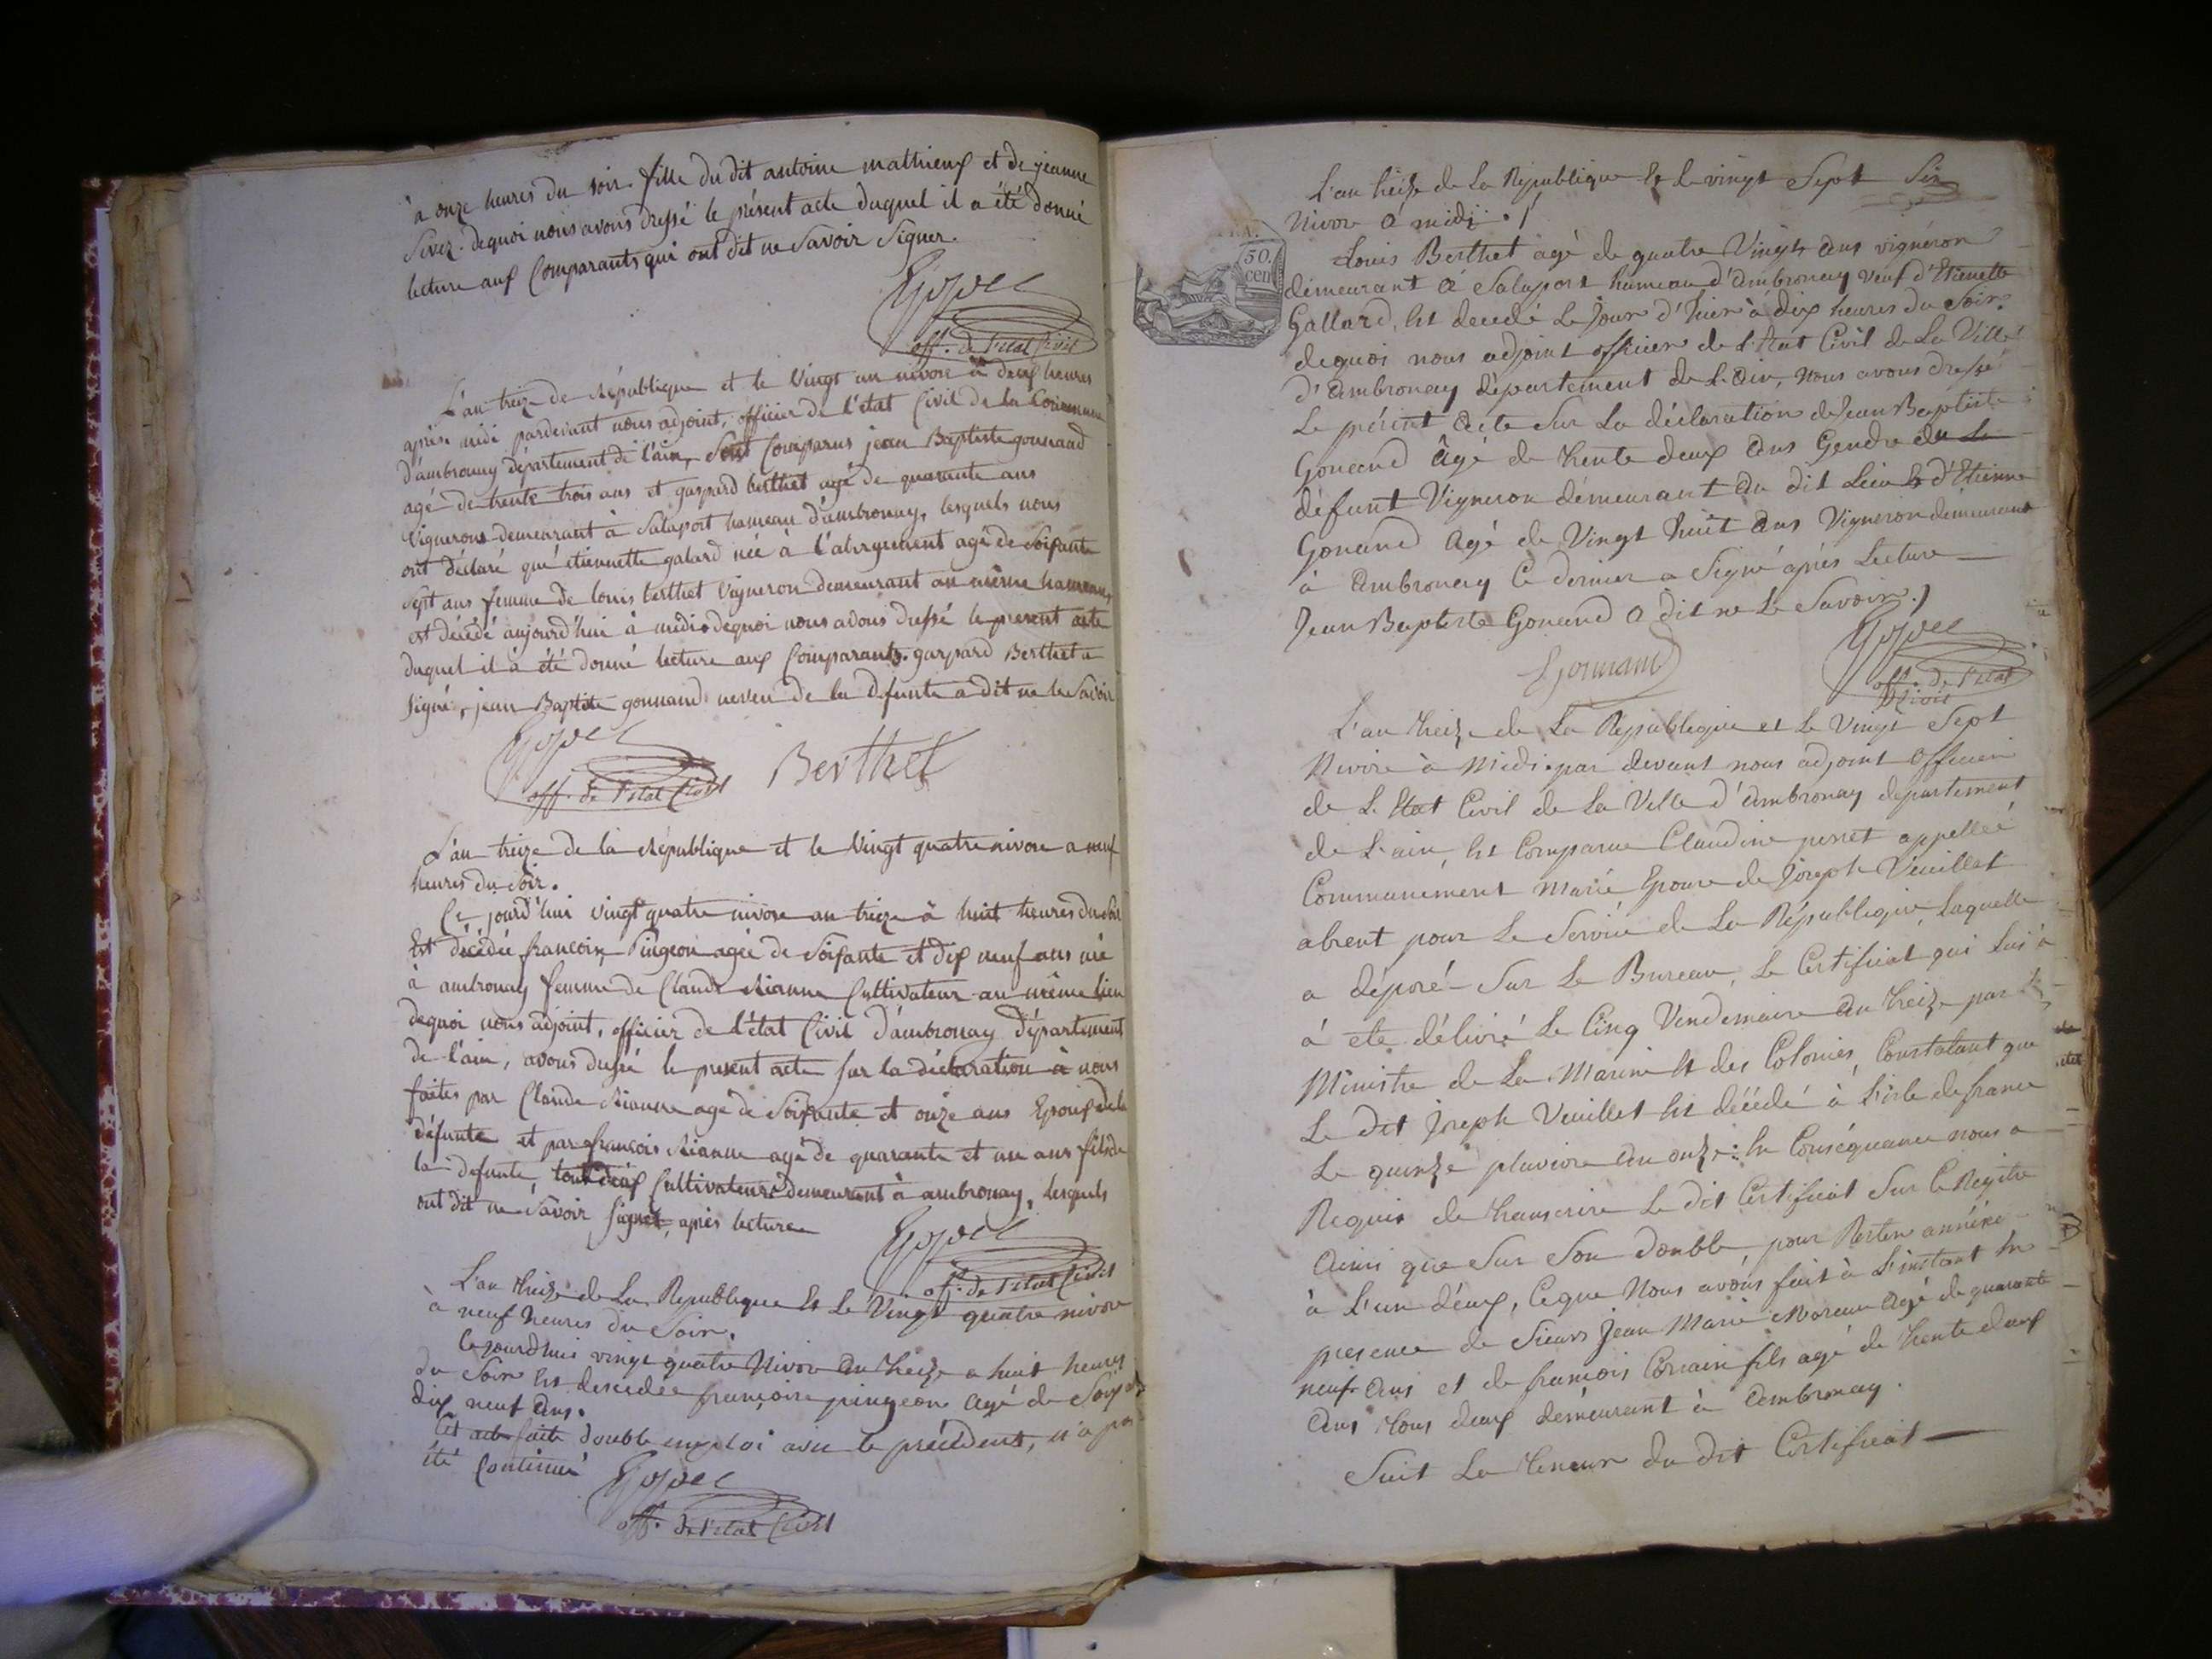 à onze heures du soir. fille du dit antoine mathieux et de jeanne
Sivez. dequoi nous avons dressé le présent acte duquel il a été donné
lecture aux Comparants qui ont dit ne savoir Signer.
off. de l'état Civil
L'an treize de République et le Vingt un nivose à deux heures
après midi pardevant nous adjoint, officier de l'état Civil de la Commune
d'ambronay département de l'ain, Sont Comparus jean Baptiste gonnand
agé de trente trois ans et gaspard berthet agé de quarante ans
Vignerons demeurant à Salaport hameau d'ambronay, lesquels nous
ont déclaré que étiennette galard née à l'abergement agé de Soixante
Sept ans femme de louis berthet Vigneron demeurant au même hameau,
est décédé aujourd'hui à midi dequoi nous avons dressé le present acte
duquel il à été donné lecture aux Comparants. gaspard Berthet a
Signé, jean Baptiste gonnand neveu de la defunte a dit ne le Savoir
off. de l'état Civil Berthet
L'an treize de la République et le Vingt quatre nivose a neuf
heures du Soir.
Ce jourd'hui vingt quatre nivose an treize à huit heures du Soir
Est décédée francoise Pingeon agée de Soixante et dix neuf ans née
à ambronay femme de Claude Rianne Cultivateur au même lieu
dequoi nous adjoint, officier de l'état Civil d'ambronay Département
de l'ain, avons dressé le present acte sur la déclaration à nous
faites par Claude Rianne agé de Soixante et onze ans Epoux de la
défunte et par françois Rianne agé de quarante et un ans fils de
la defunte, tout deux Cultivateurs demeurant à ambronay, lesquels
ont dit ne Savoir Signer, après lecture
off. de l'état Civil
L'an treize de La Republique Et Le Vingt quatre nivose
à neuf heures du Soir.
Cejourdhui vingt quatre Nivose an treize a huit heures
du Soir Est decedée françoise pingeon agé de
dix neuf ans.
Cet acte faite double emploi avec le précédent, n'a pas
été Continué
off. de l'état Civil
L'an treize de La République Et le vingt Sept Six
Nivose à midi.
50.
cen
Louis Berthet agé de quatre Vingts ans vigneron
demeurant à Salaport hameau d'ambronay veuf d'Etienette
Gallard, Est decedé Le Jour d'hier à dix heures du Soir.
dequoi nous adjoint officier de L'Etat Civil de La Ville
d'ambronay département de L'ain, nous avons dressé
Le présent acte Sur La déclaration de Jean Baptiste
Gonand âgé de trente deux ans Gendre du Le
défunt Vigneron démeurant au dit Lieu Et d'Etienne
Gonand agé de Vingt huit ans Vigneron démeurant
à ambronay Ce dernier a Signé après Lecture
Jean Baptiste Gonand a dit ne Le Savoir.
Gonnand off. de l'état
Civil
L'an treize de La Republique et Le Vingt Sept
Nivose à Midi. par devant nous adjoint officier
de L'Etat Civil de La Ville d'ambronay departement
de L'ain, Est Comparue Claudine perret appellée
Communement Marié Epouse de Joseph Veuillet
absent pour Le Service de La République, Laquelle
a déposé Sur Le Bureau, Le Certificat qui Lui a
à eté délivré Le Cinq Vendemiaire an treize par
Ministre de La Marine Et des Colonies, Constatant que
Le dit Joseph Veuillet Est décédé à L'isle de france
Le quinze pluviose an onze : En Conséquence nous a
Requis de transcrire Le dit Certificat Sur Ce Registre
ainsi que Sur Son double, pour Rester annéxé
à L'un d'eux, Ceque Nous avons fait à L'instant En
presence de Sieurs Jean Marie Moreau agé de quarante
neuf ans et de francois fils agé de trente deux
ans tous deux démeurant à ambronay.
Suit La teneur du dit Certificat